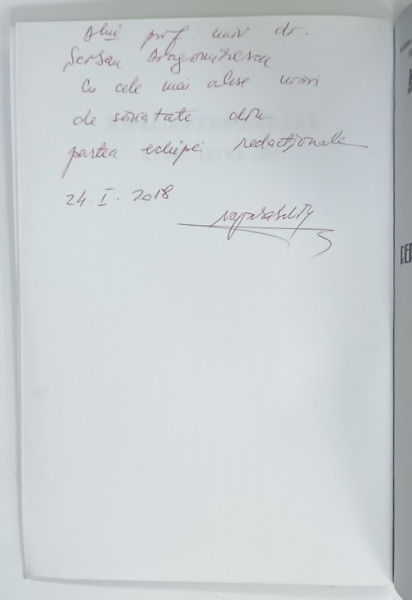 Dlui prof. univ. dr.
Șerban Dragomirescu
Cu cele mai alese urări
de sănătate din
partea echipei redacționale
24. I. 2018